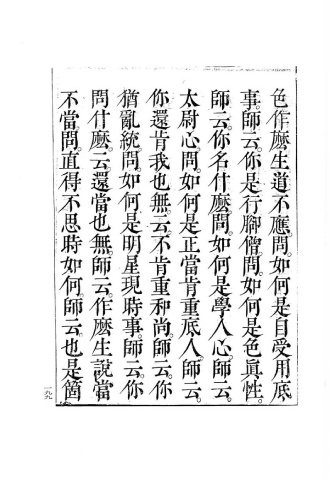 色作麽生道不應。問。如何是自受用底
事。師云。你是行腳僧。問。如何是色真性。
師云。你名什麽。問。如何是學人心。師云。
太尉心。問。如何是正當肯重底人。師云。
你還肯我也無。云。不肯重和尚。師云。你
猶亂統。問。如何是明星現時事。師云。你
問什麽。云。還當也無。師云。作麽生說當
不當。問。直得不思時如何。師云。也是箇
一九九